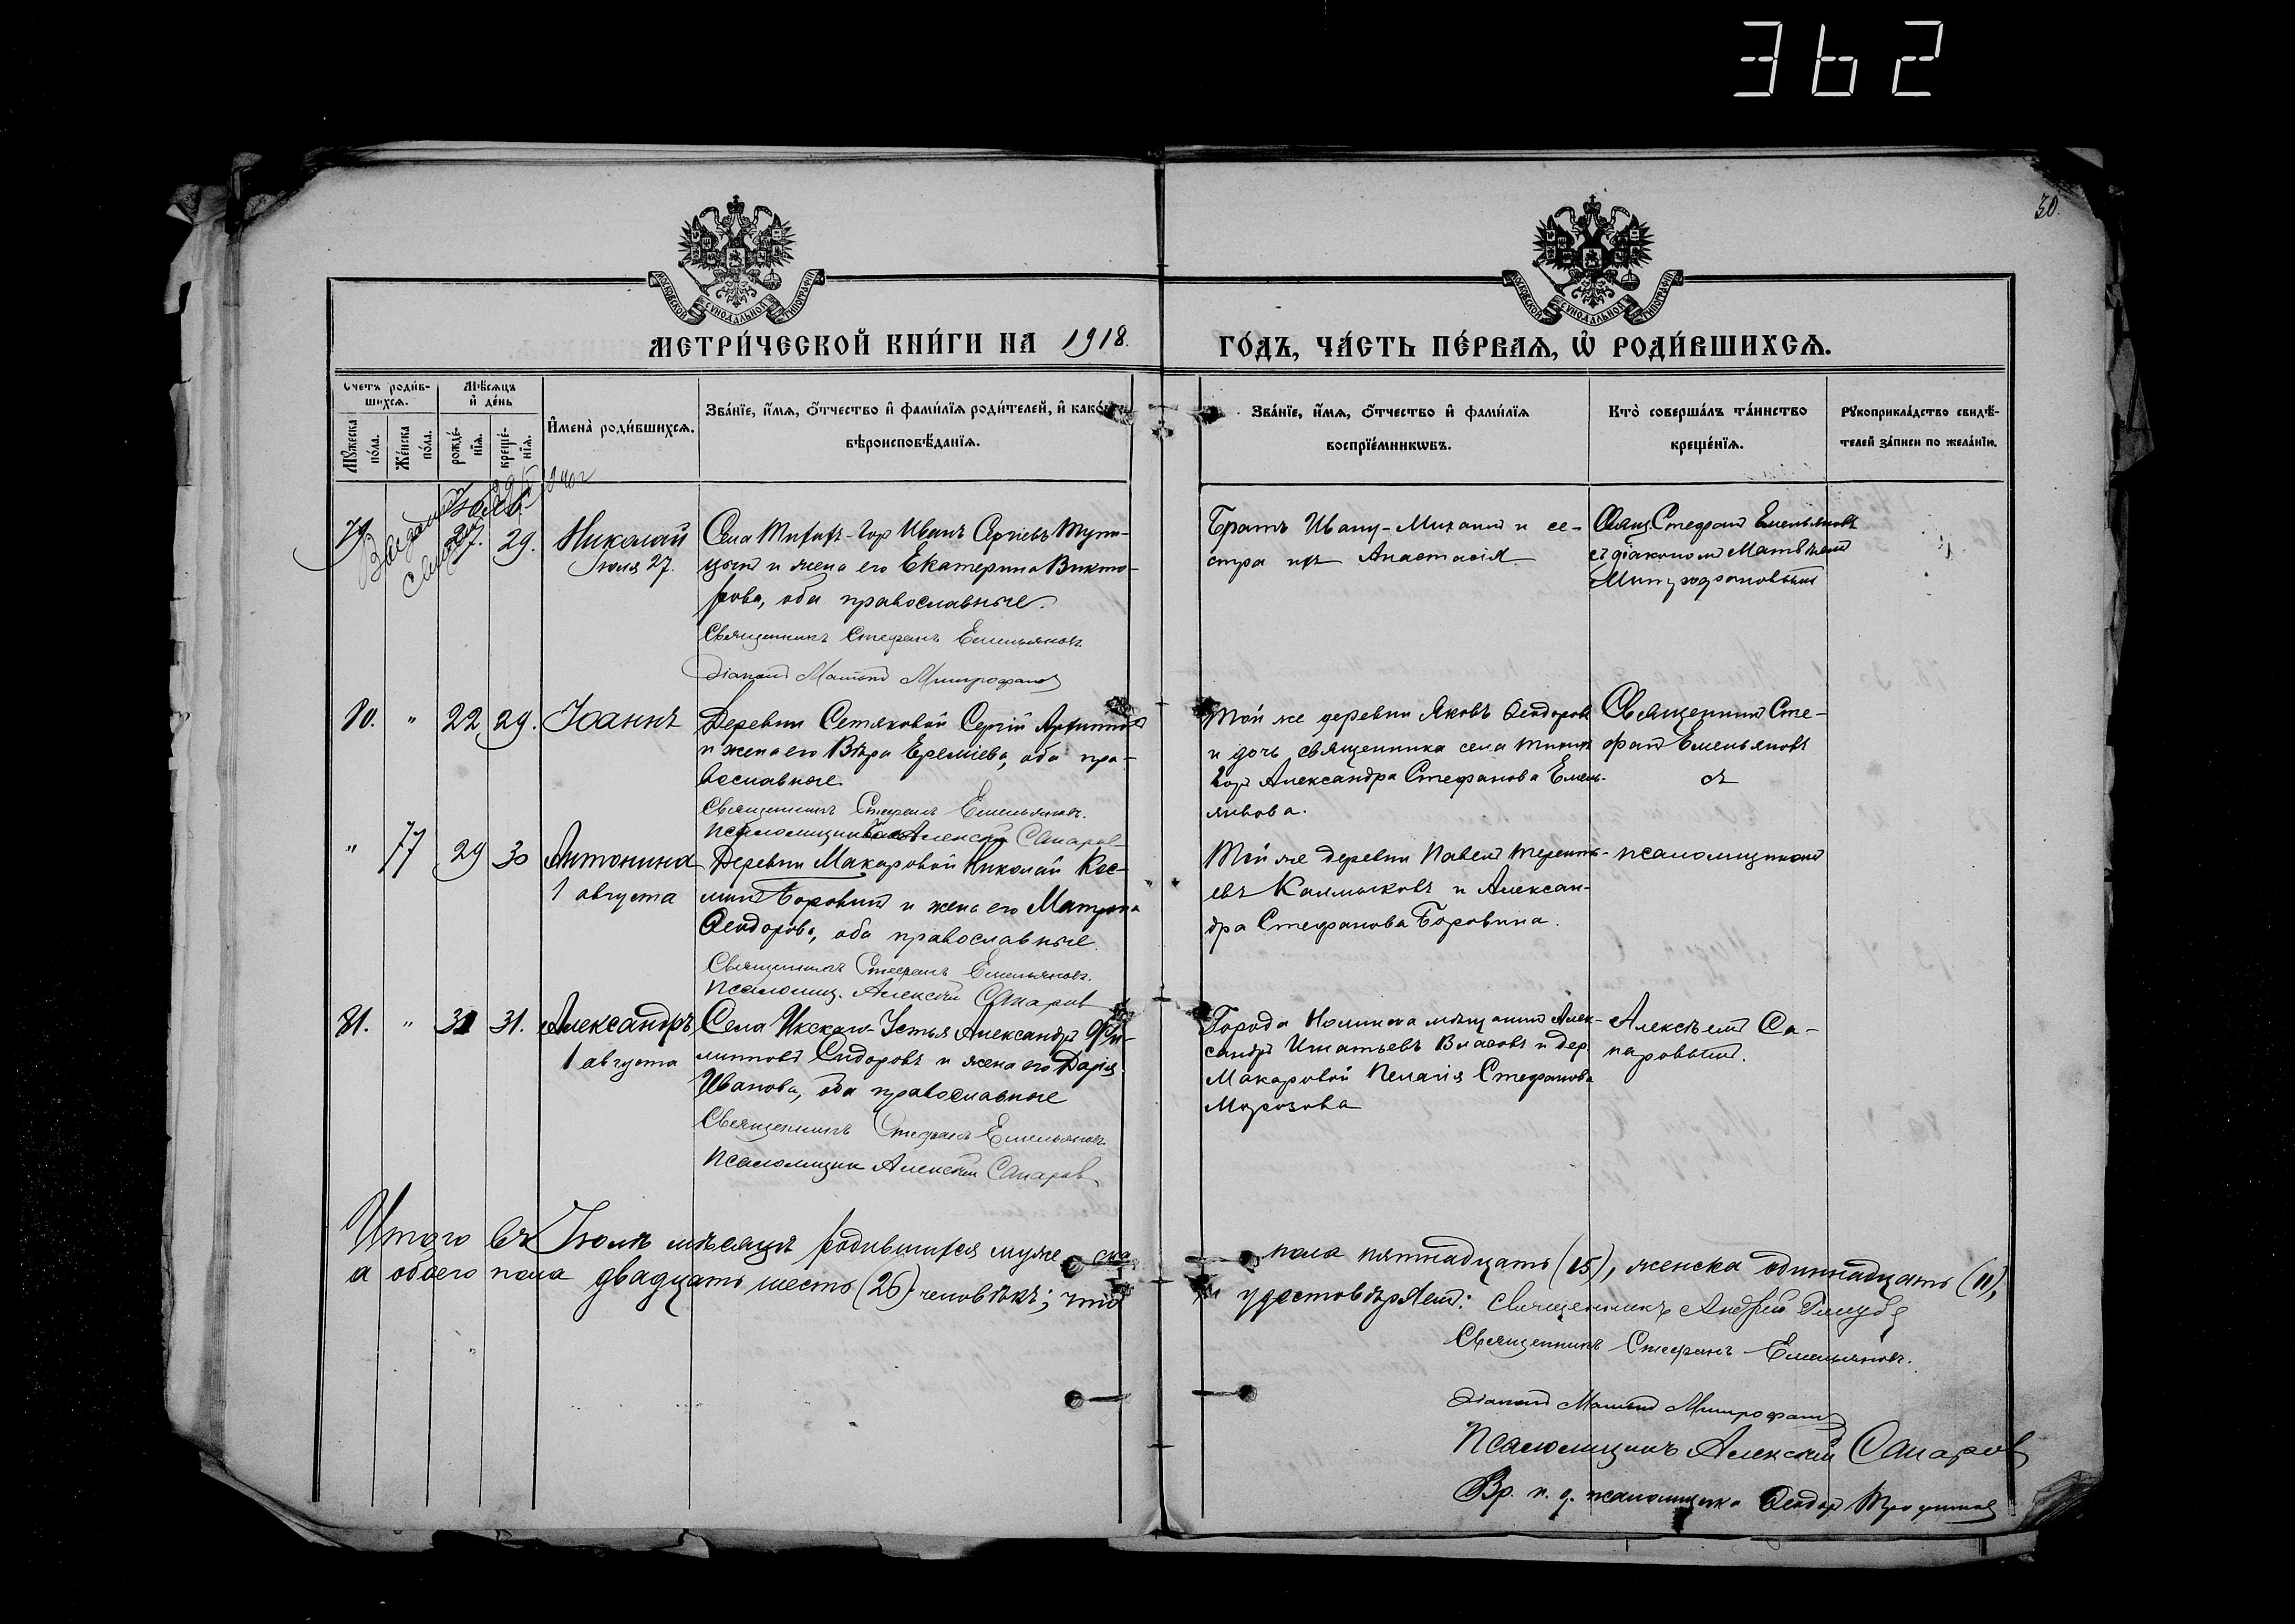 362
30.
МОСКОВСКОЙ СУНОДАЛЬНОЙ ТИПОГРАФІИ
МОСКОВСКОЙ СУНОДАЛЬНОЙ ТИПОГРАФІИ
МЕТРИ́ЧЕСКОЙ КНИ́ГИ НА 1918.
ГО́ДЪ, ЧА́СТЬ ПЕ́РВАѦ, Ѡ҆ РОДИ́ВШИХСѦ.
Счетъ роди́в-
шихсѧ.
Мѣ́сѧцъ
и҆ де́нь
Мꙋ́жеска
по́ла.
Же́нска
по́ла.
рожде́-
нїѧ.
креще́-
нїѧ.
И҆мена̀ роди́вшихсѧ.
Зва́нїе, и҆́мѧ, ѻ҆́тчество и҆ фами́лїѧ роди́телей, и҆ како́гѡ
вѣроисповѣ́данїѧ.
Зва́нїе, и҆́мѧ, ѻ҆́тчество и҆ фами́лїѧ
воспрїе́мникѡвъ.
Кто̀ соверша́лъ та́инство
креще́нїѧ.
Рꙋкоприкла́дство свидѣ́-
телей за́писи по жела́нїю.
79 27. 29. Николай
Іюля 27.
Села Тихихъ-Гор Иванъ Сергіевъ
и жена его Екатерина Викто-
рова, оба православные.
Священникъ Стефанъ Емельяновъ.
Діаконъ Матвѣй Митрофановъ
Братъ Ивану - Михаилъ и се-
стра их Анастасія.
Свящ. Стефанъ Емельяновъ
съ діакономъ Матвѣемъ
Митрофановымъ
80. " 22 29. Іоаннъ
Деревни Сетяковой Сергій
и жена его Вѣра Ереміева, оба пра-
вославные.
Священникъ Стефанъ Емельяновъ.
Псаломщикъ Алексѣй Сапаров
Той же деревни Яковъ Ѳеодоровъ
и дочь священника села Тихихъ
Горъ Александра Стефанова Емель-
янова.
Священникъ Сте-
фанъ Емельяновъ
съ
" 77 29 30 Антонина
1 августа
Деревни Макаровой Николай Кос-
минъ Боровинъ и жена его Матрона
Ѳеодорова, оба православные.
Священникъ Стефанъ Емельяновъ.
Псаломщ. Алексѣй Сапаров
Той же деревни Павелъ Теренть-
евъ Калмыковъ и Алексан-
дра Стефанова Боровина.
псаломщикомъ
81. " 31 31. Александръ
1 августа
Села Икскаго-Устья Александръ Фи-
липповъ Сидоровъ и жена его Дарія
Иванова, оба православные
Священникъ Стефанъ Емельяновъ.
Псаломщик Алексѣй Сапаров
Города мѣщанинъ Алек-
сандръ Игнатьевъ Власовъ и дер.
Макаровой Пелагія Стефанова
Морозова
Алексѣемъ Са-
паровымъ.
Итого въ Іюлѣ мѣсяцѣ родившихся муже ска
пола пятнадцать (15), женска одиннадцать (11),
а обоего пола двадцать шесть (26) человѣкъ; что
удостовѣряемъ: Священникъ Андрей
Священникъ Стефанъ Емельяновъ.
Діаконъ Матвѣй Митрофановъ
Псаломщикъ Алексѣй Сапаров
Вр. и. д. псаломщика Ѳеодоръ